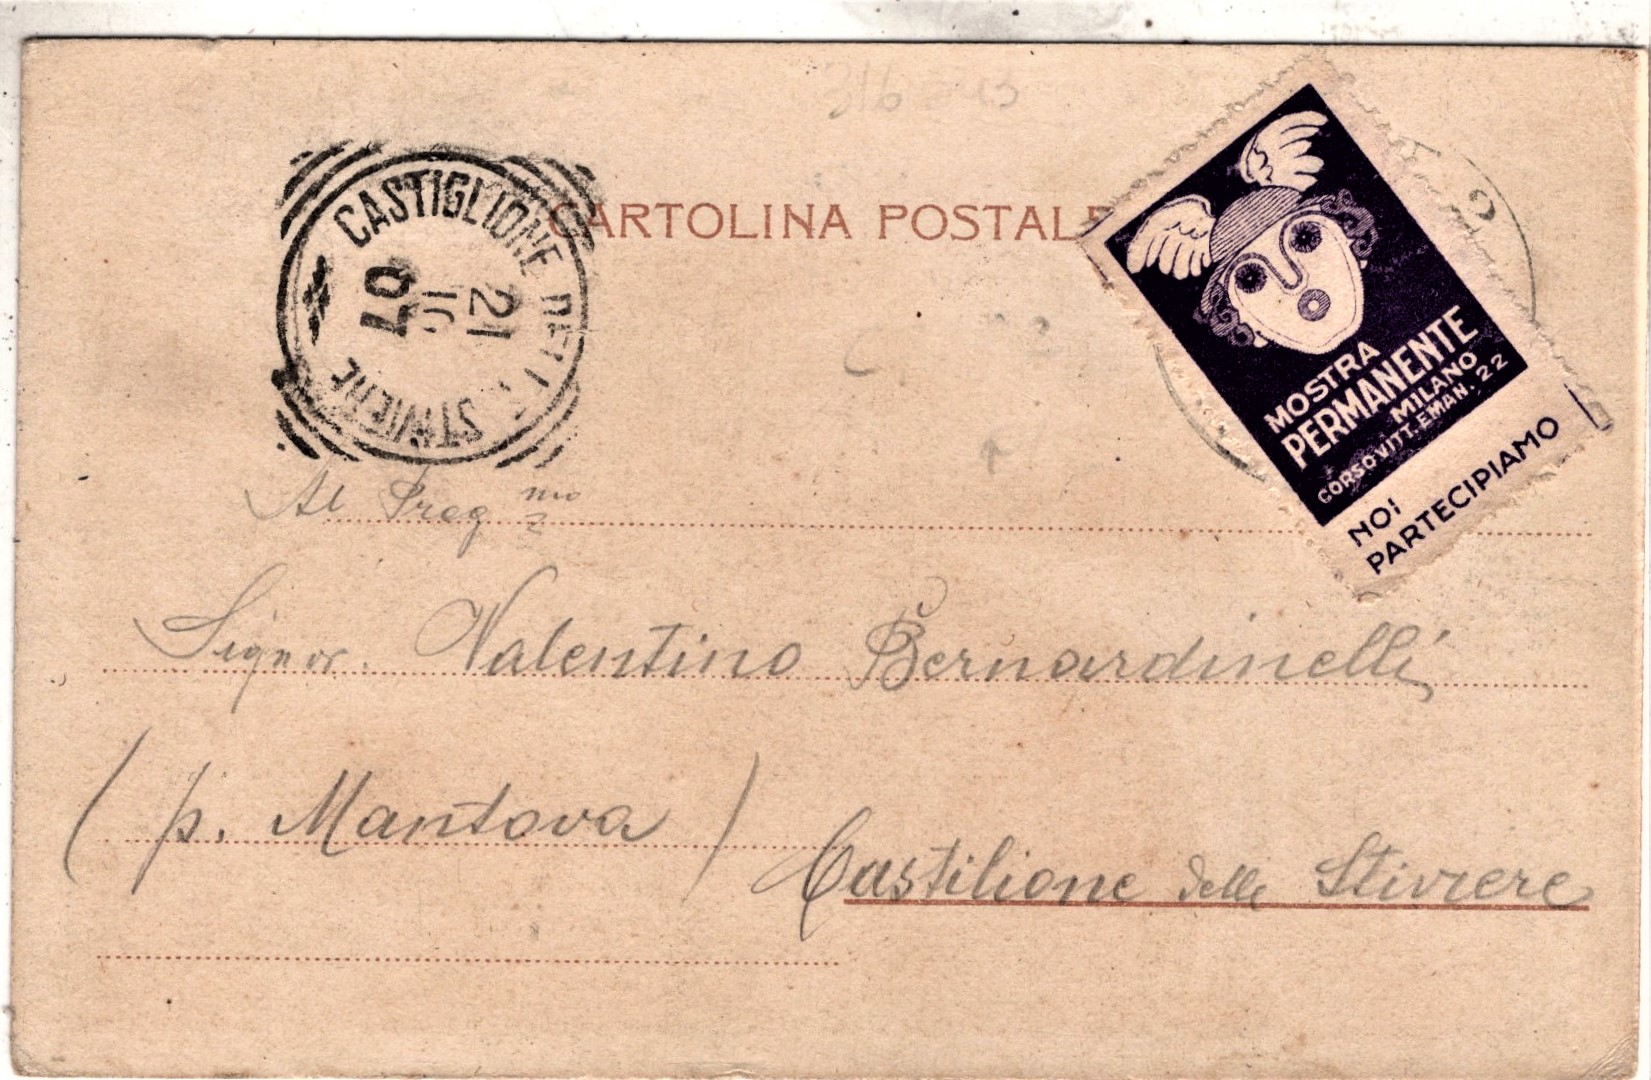 CARTOLINA POSTALE
CASTIGLIONE DELLE STIVIERE
21
07
MOSTRA
PERMANENTE
MILANO
CORSO VITT. EMAN. 22
NOI
PARTECIPIAMO
Al Preg mo
Signor. Valentino Bernardinelli
(p. Mantova)
Castilione delle Stiviere